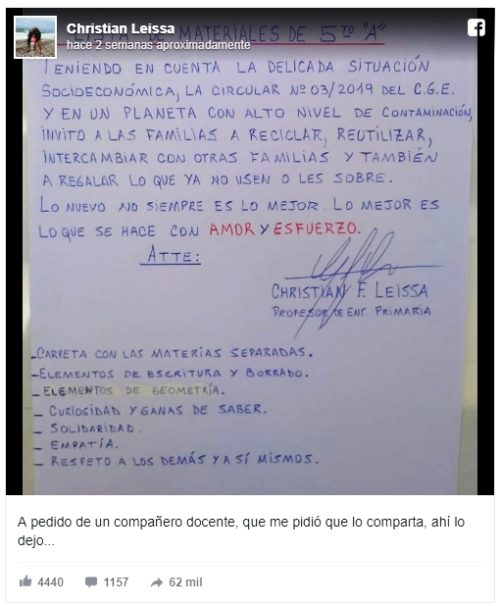 Christian Leissa
hace 2 semanas aproximadamente
MATERIALES DE 5TO "A"
TENIENDO EN CUENTA LA DELICADA SITUACIÓN
SOCIOECONÓMICA, LA CIRCULAR Nº 03/2019 DEL C.G.E.
Y EN UN PLANETA CON ALTO NIVEL DE CONTAMINACIÓN,
INVITO A LAS FAMILIAS A RECICLAR, REUTILIZAR,
INTERCAMBIAR CON OTRAS FAMILIAS Y TAMBIÉN
A REGALAR LO QUE YA NO USEN O LES SOBRE.
LO NUEVO NO SIEMPRE ES LO MEJOR. LO MEJOR ES
LO QUE SE HACE CON AMOR Y ESFUERZO.
ATTE:
CHRISTIAN F. LEISSA
PROFESOR DE ENS. PRIMARIA
-CARPETA CON LAS MATERIAS SEPARADAS.
-ELEMENTOS DE ESCRITURA Y BORRADO.
- ELEMENTOS DE GEOMETRÍA.
- CURIOSIDAD Y GANAS DE SABER.
- SOLIDARIDAD.
- EMPATÍA.
- RESPETO A LOS DEMÁS Y A SÍ MISMOS.
A pedido de un compañero docente, que me pidió que lo comparta, ahí lo
dejo...
4440 1157 62 mil